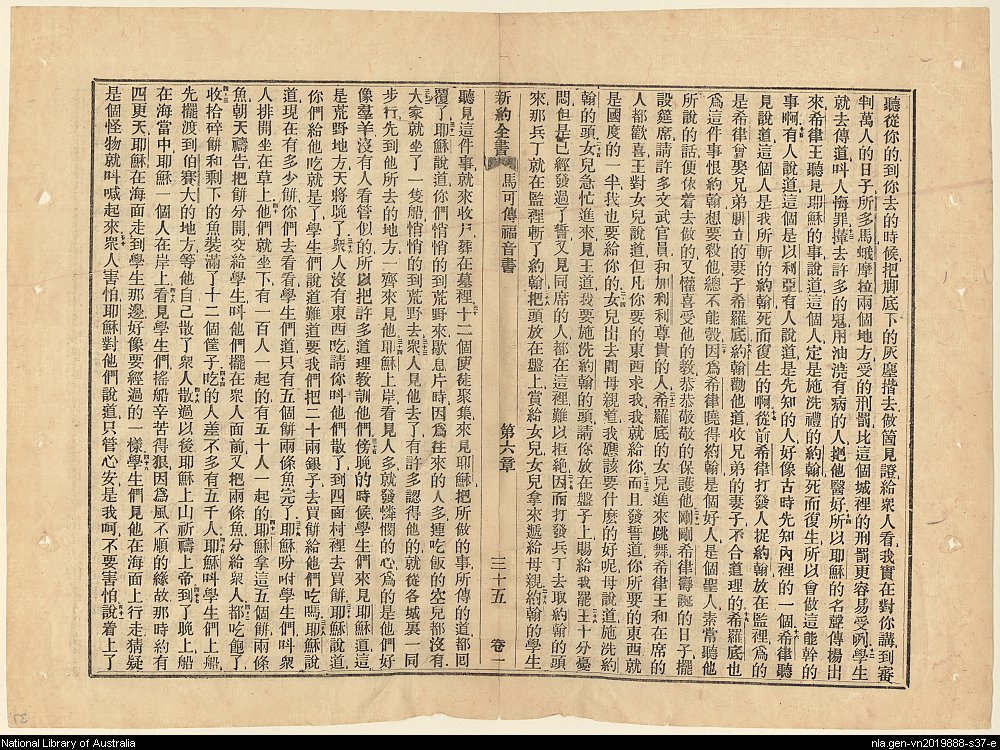 聽從你的到你去的時候把脚底下的灰塵撘去做箇見證給衆人看我實在對你講到審
判萬人的日子所多馬蛾摩拉兩個地方受的刑罰比這個城裡的刑罰更容易受咧學生
就去傳道呌人悔罪攆去許多的冤用油澆有病的人把他醫好所以耶穌的名聲傳楊出
來希律王聽見耶穌的事說道這個人定是施洗禮的約翰死而復生所以會做這能幹的
事啊有人說道這個是以利亞有人說道是先知的人好像古時先知內裡的一個希律聽
見說道這個人是我所斬的約翰死而復生的啊從前希律打發人捉約翰放在監裡爲的
是希律曾娶兄弟腓立的妻子希羅底約翰勸他道收兄弟的妻子不合道理的希羅底也
爲這件事恨約翰想要殺他總不能彀因爲希律曉得約翰是個好人是個聖人素常聽他
所說的話便依着去做的又懽喜受他的教恭恭敬敬的保護他剛剛希律壽誕的日子擺
設筵席請許多文武官員和加利利尊貴的人希羅底的女兒進來跳舞希律王和在席的
人都歡喜王對女兒說道但凡你要的東西求我我就給你而且發誓道你所要的東西就
是國度的一半我也要給你的女兒出去問母親道我應該要什麽的好呢母說道施洗約
翰的頭女兒急忙進來見王道我要施洗約翰的頭請你放在盤子上賜給我罷王十分憂
悶但是已經發過了誓又見同席的人都在這裡難以拒絶因而打發兵丁去取約翰的頭
來那兵丁就在監裡斬了約翰把頭放在盤上賞給女兒女兒拿來遞給母親約翰的學生
新約全書 馬可傳福音書 第六章 三十五 卷一
聽見這件事就來收尸葬在墓裡十二個使徒聚集來見耶穌把所做的事所傳的道都回
覆了耶穌說道你們悄悄的到荒野來歇息片時因爲往來的人多連吃飯的空兒都沒有
大家就坐了一隻船悄悄的到荒野去衆人見他去了有許多認得他的就從各城裏一同
步行先到他所去的地方一齊來見他耶穌上岸看見人多就發憐憫的心爲的是他們好
像羣羊沒有人看管似的所以把許多道理教訓他們傍晚的時候學生們來見耶穌道這
是荒野地方天將晚了衆人沒有東西吃請你呌他們散了到四面村裡去買餅耶穌說道
你們給他吃就是了學生們說道難道要我們把二十兩銀子去買餅給他們吃嗎耶穌說
道現在有多少餅你們去看看學生們道只有五個餅兩條魚完了耶穌吩咐學生們呌衆
人排開坐在草上他們就坐下有一百人一起的有五十人一起的耶穌拿這五個餅兩條
魚朝天禱告把餅分開交給學生呌他們擺在衆人面前又把兩條魚分給衆人都吃飽了
收拾碎餅和剩下的魚裝滿了十二個筐子吃的人差不多有五千人耶穌呌學生們上船
先擺渡到伯賽大的地方等他自己散了衆人散過以後耶穌上山祈禱上帝到了晚上船
在海當中耶穌一個人在岸上看見學生們搖船辛苦得狠因爲風不順的緣故那時約有
四更天耶穌在海面走到學生那邊好像要經過的一樣學生們見他在海面上行走猜疑
是個怪物就呌喊起來衆人害怕耶穌對他們說道只管心安是我呵不要害怕說着上了
National Library of Australia
nla.gen-vn2019888-s37-e